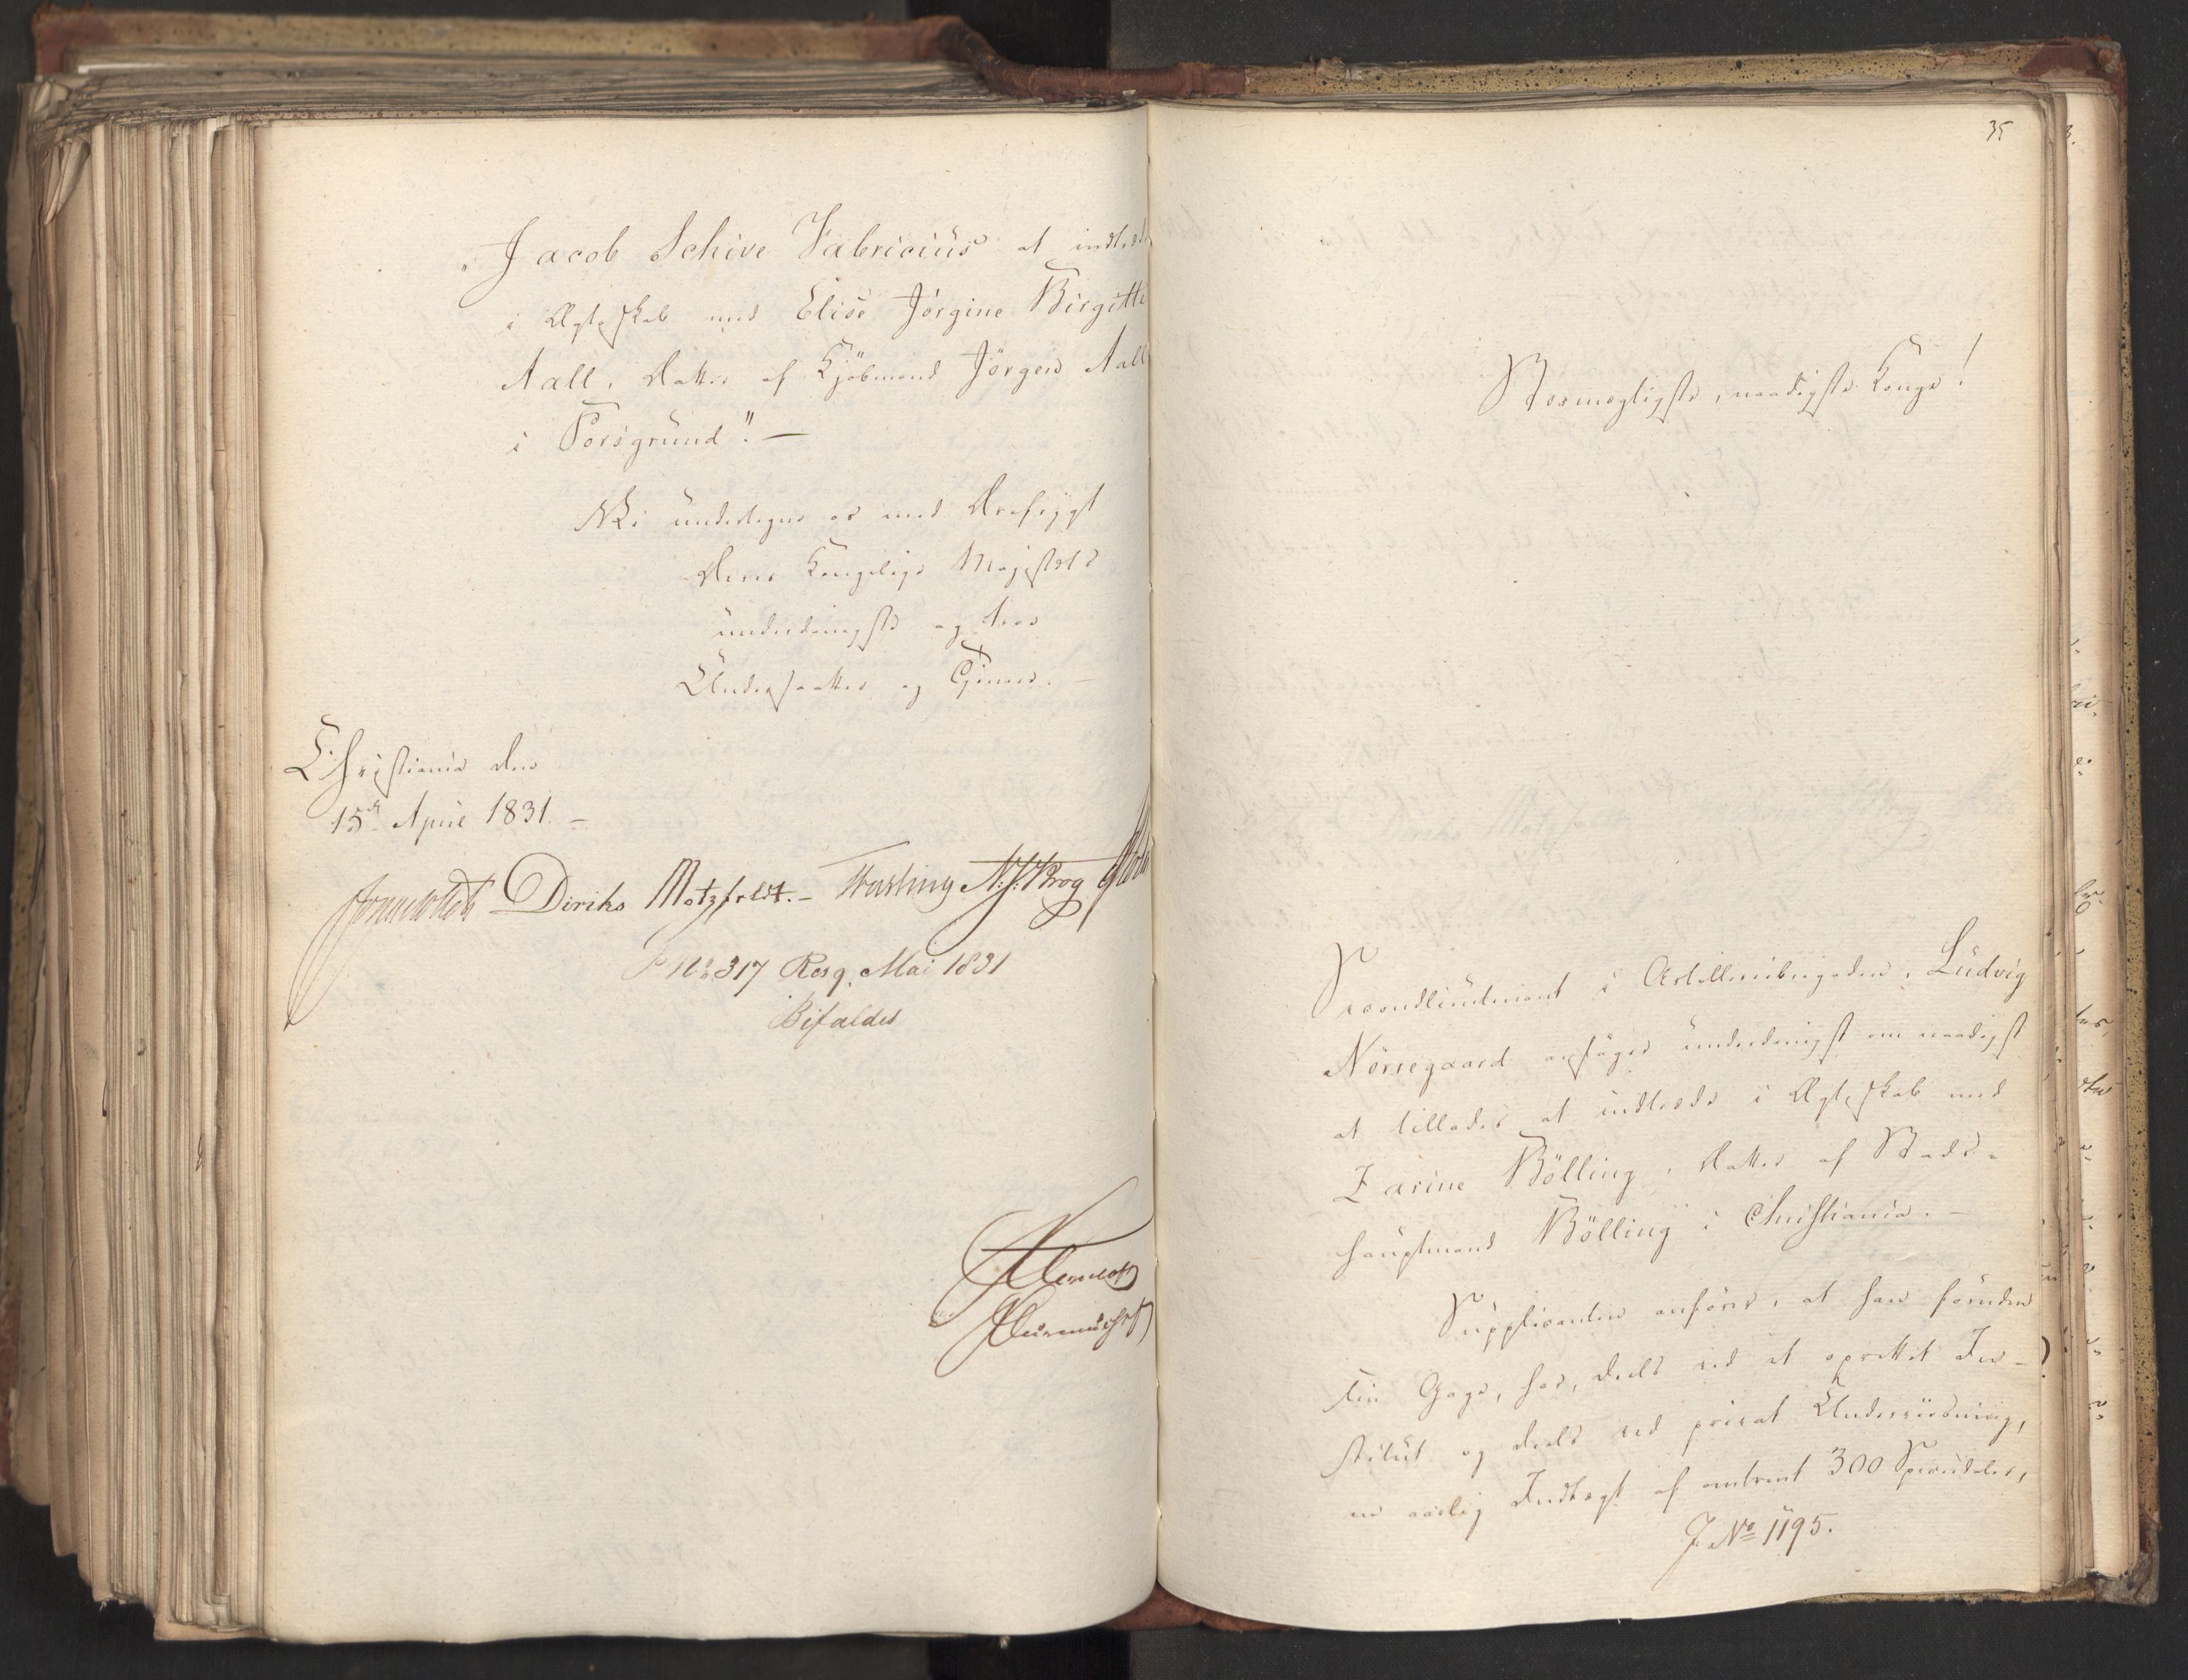 "Jacob Schive Fabricius at indtræde
i Ægteskab med Elise Jörgine Birgitte
Aall, Datter af Kjøbmand Jörgen Aall
i Porsgrund". —
Vi undertegne os med Ærefrygt
Deres Kongelige Majestæts
underdanigste og troe
Undersaatter og Tjenere. —
Christiania den
15de April 1831. —
Diriks Motzfeldt. — Fasting N. J. Krog
No 317 Res 9. Mai 1831
Bifaldes
35
Stormægtigste, naadigste Konge!
Secondlieutenant i Artilleribrigaden, Ludvig
Nörregaard ansøger underdanigst om naadigst
at tillades at indtræde i Ægteskab med
Zarine Bölling, Datter af Stads-
hauptmand Bölling i Christiania. —
Supplicanten anfører, at han foruden
sin Gage, har, deels ved et oprettet In-
stitut og deels ved privat Underviisning,
en aarlig Indtægt af omtrent 300 Speciedaler,
J. No 1195.